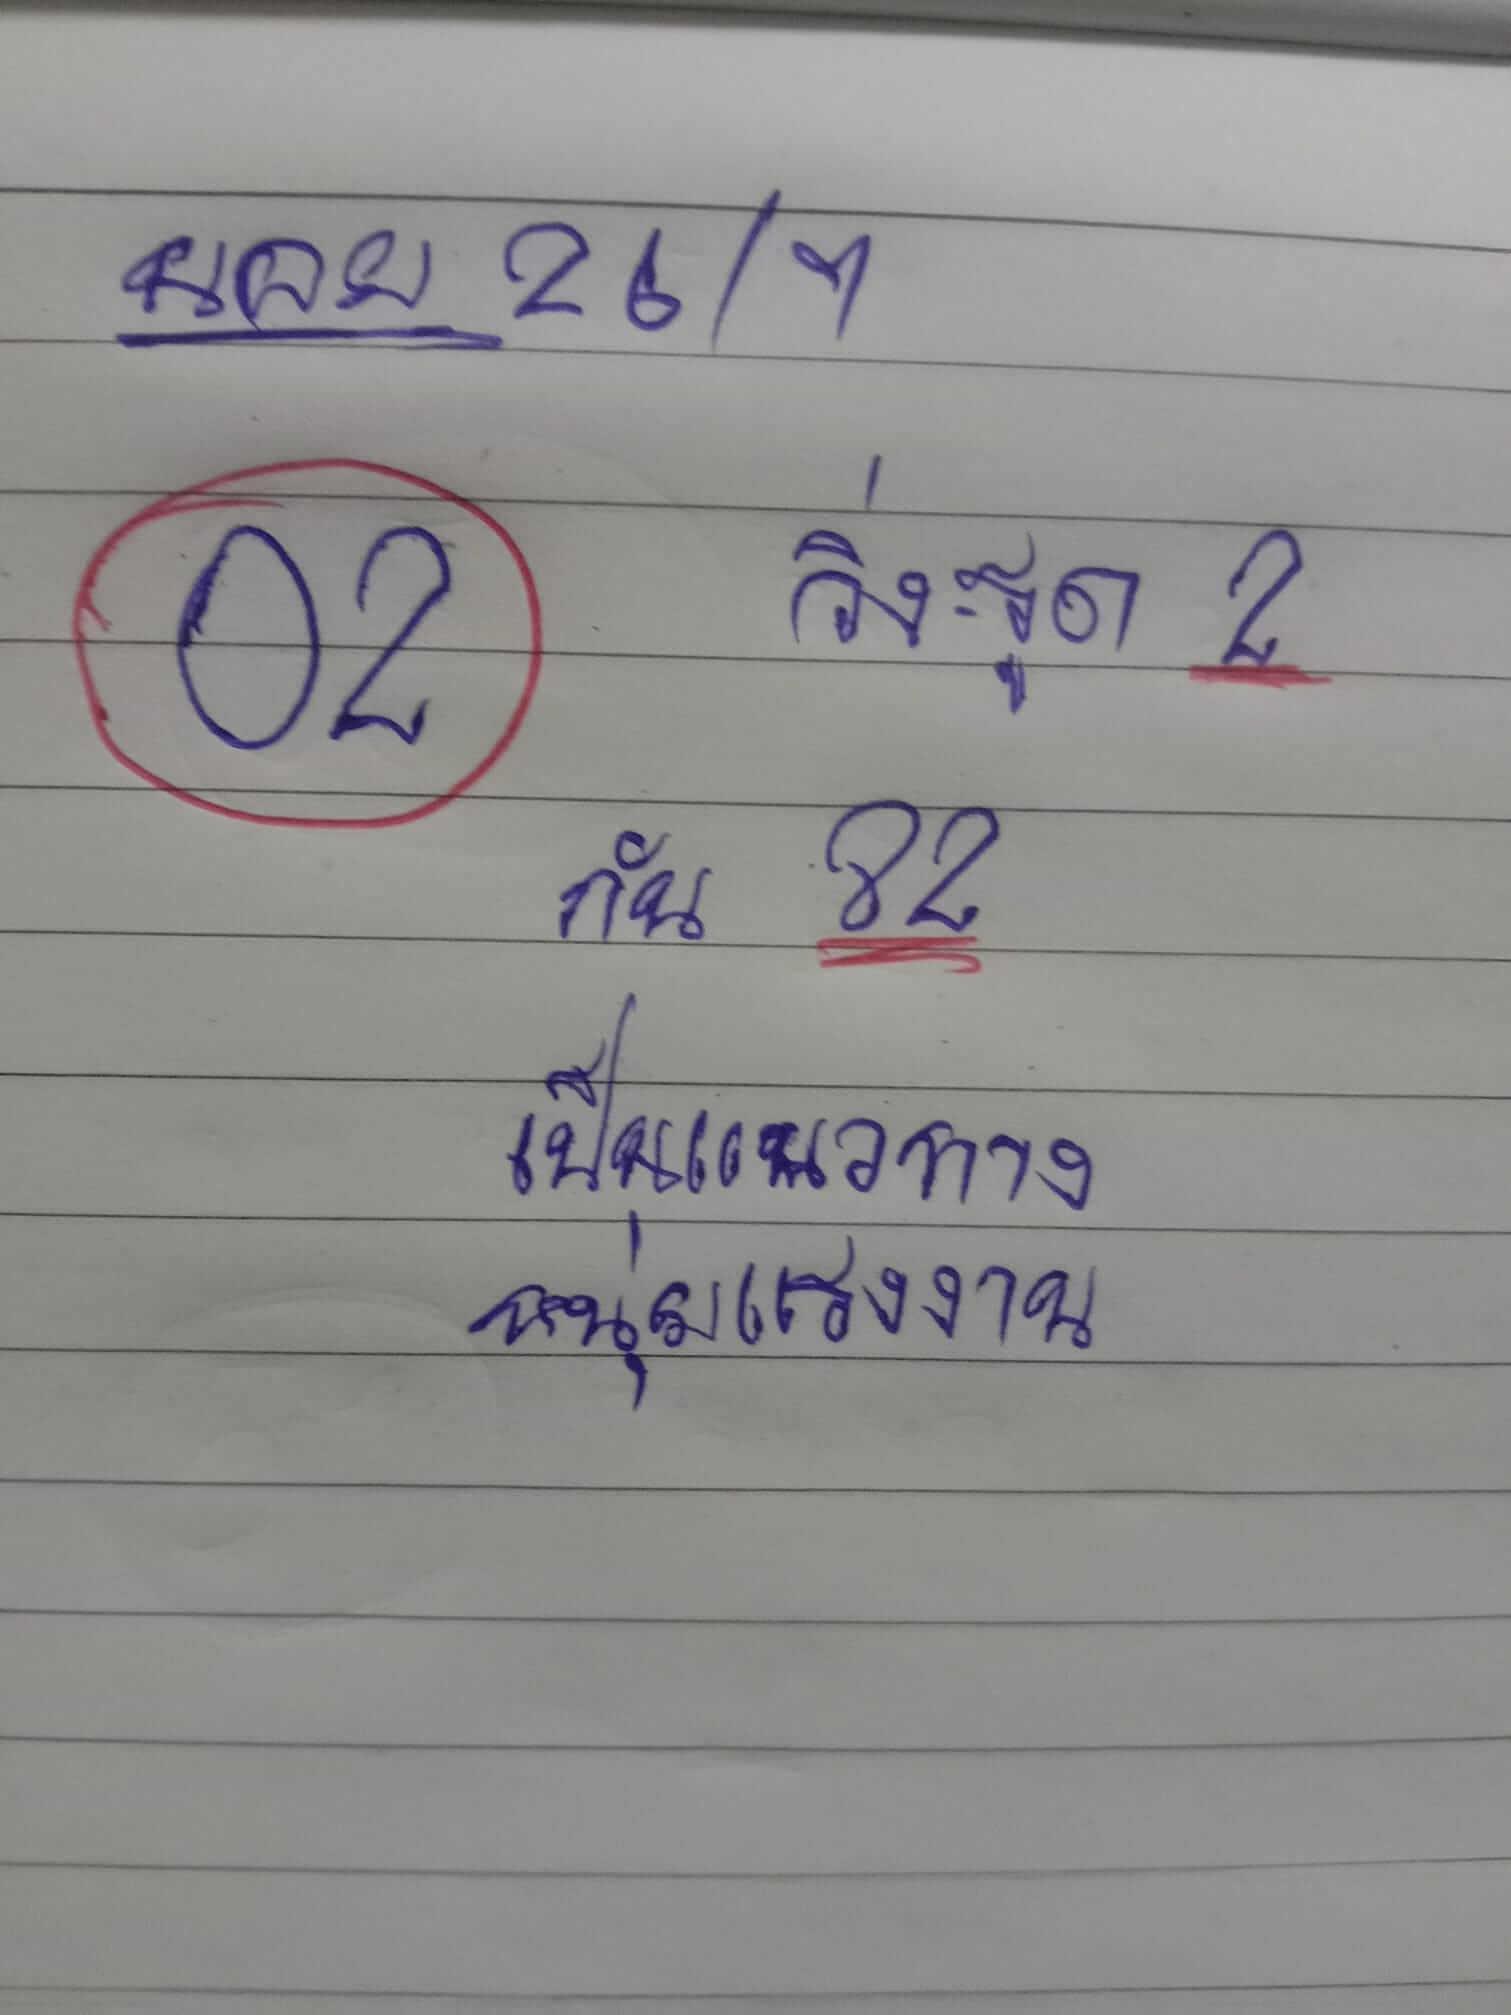 ฮานอย 26/7
02
วิ่ง-รูด 2
กัน 82
เป็นแนวทาง
หนุ่มแรงงาน